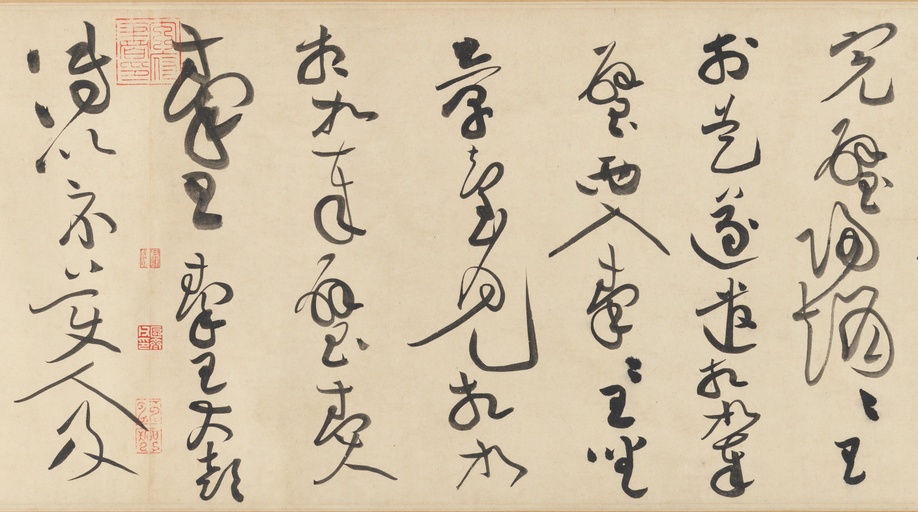 完璧歸趙〻王
於是遂遣相如奉
璧西入秦〻王坐
章臺見相如
相如奉璧奏
秦王秦王大喜
傳以示美人及